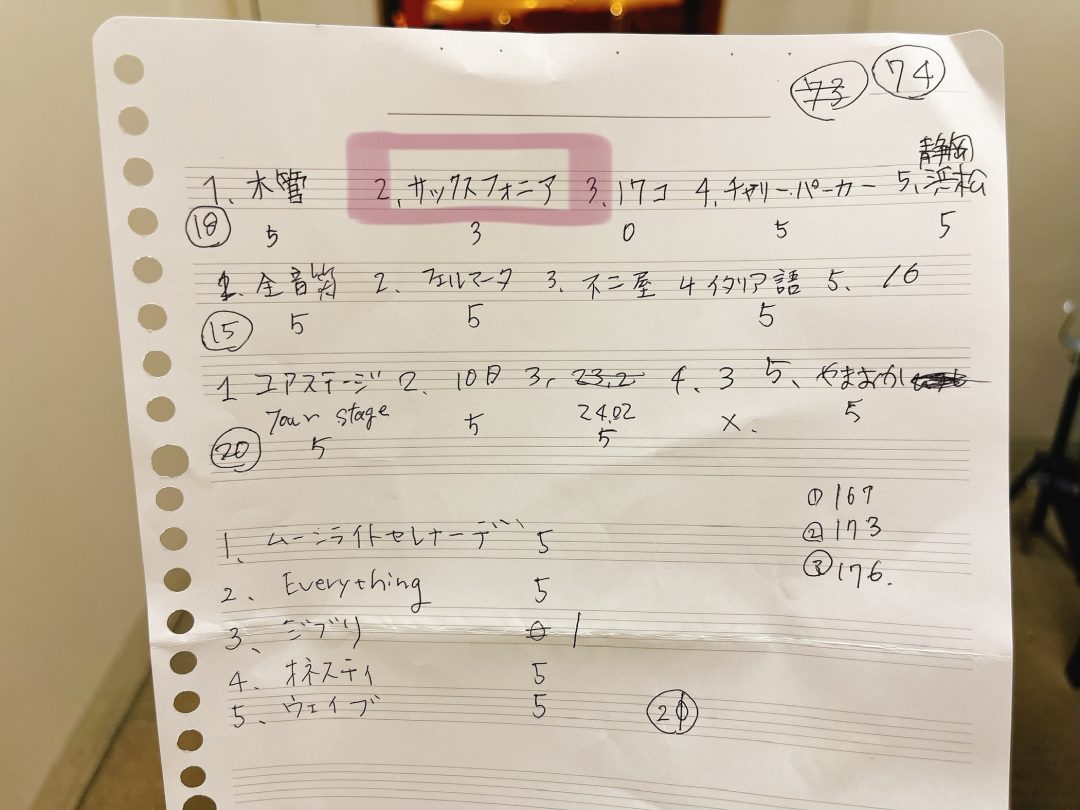 73 74
静岡
1、木管 2、サックスフォニア 3、17コ 4、チャーリー・パーカー 5、浜松
18 5 3 0 5 5
1. 全音符 2、フェルマータ 3、不二屋 4 イタリア語 5、16
15 5 5 5
1 ユアステージ 2、10月 3、23,2 4、3 5、やまおか
Your stage 5 24.02 x. 5
20 5 5
① 167
② 173
③ 176.
1、ムーンライトセレナーデ 5
2、Everything 5
3、ジブリ 0 1
4、オネスティ 5
5、ウェイブ 5